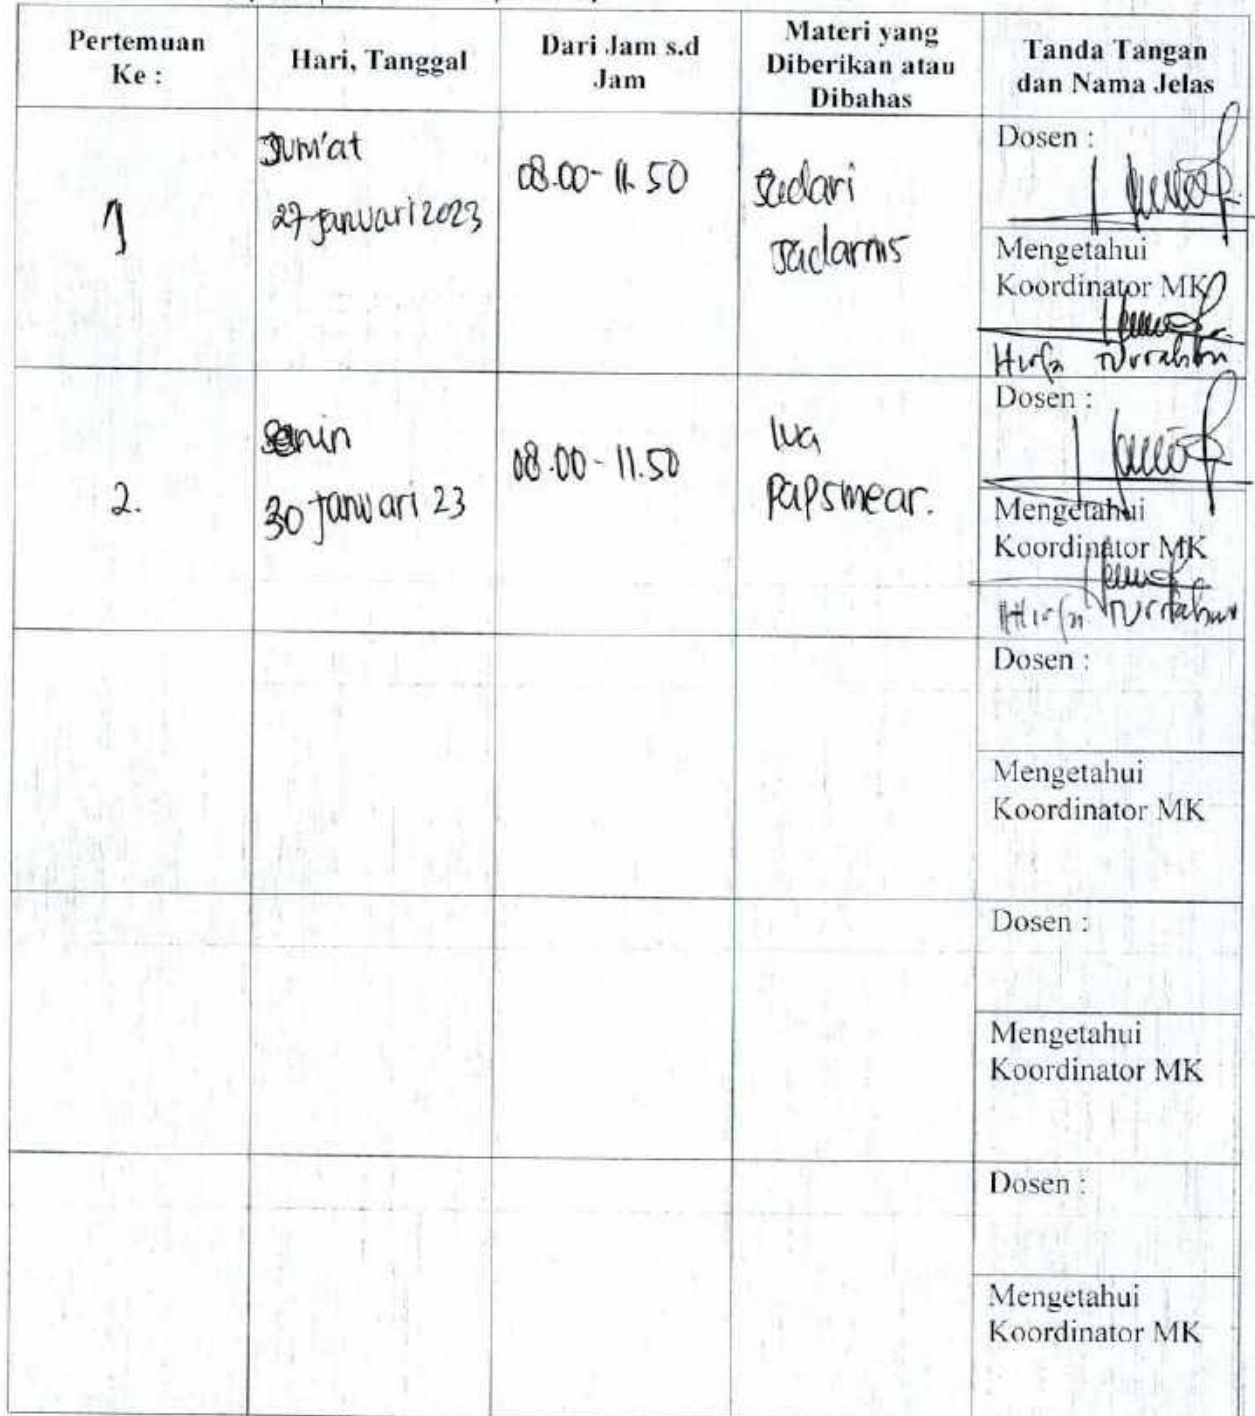 Pertemuan
Ke :
Hari, Tanggal
Dari Jam s.d
Jam
Materi yang
Diberikan atau
Dibahas
Tanda Tangan
dan Nama Jelas
1
Jum'at
27 Januari 2023
08.00 - 11.50
Sadari
Sadarnis
Dosen :
Mengetahui
Koordinator MK
2.
Senin
30 Januari 23
08.00 - 11.50
Iva
Papsmear.
Dosen :
Mengetahui
Koordinator MK
Dosen :
Mengetahui
Koordinator MK
Dosen :
Mengetahui
Koordinator MK
Dosen :
Mengetahui
Koordinator MK